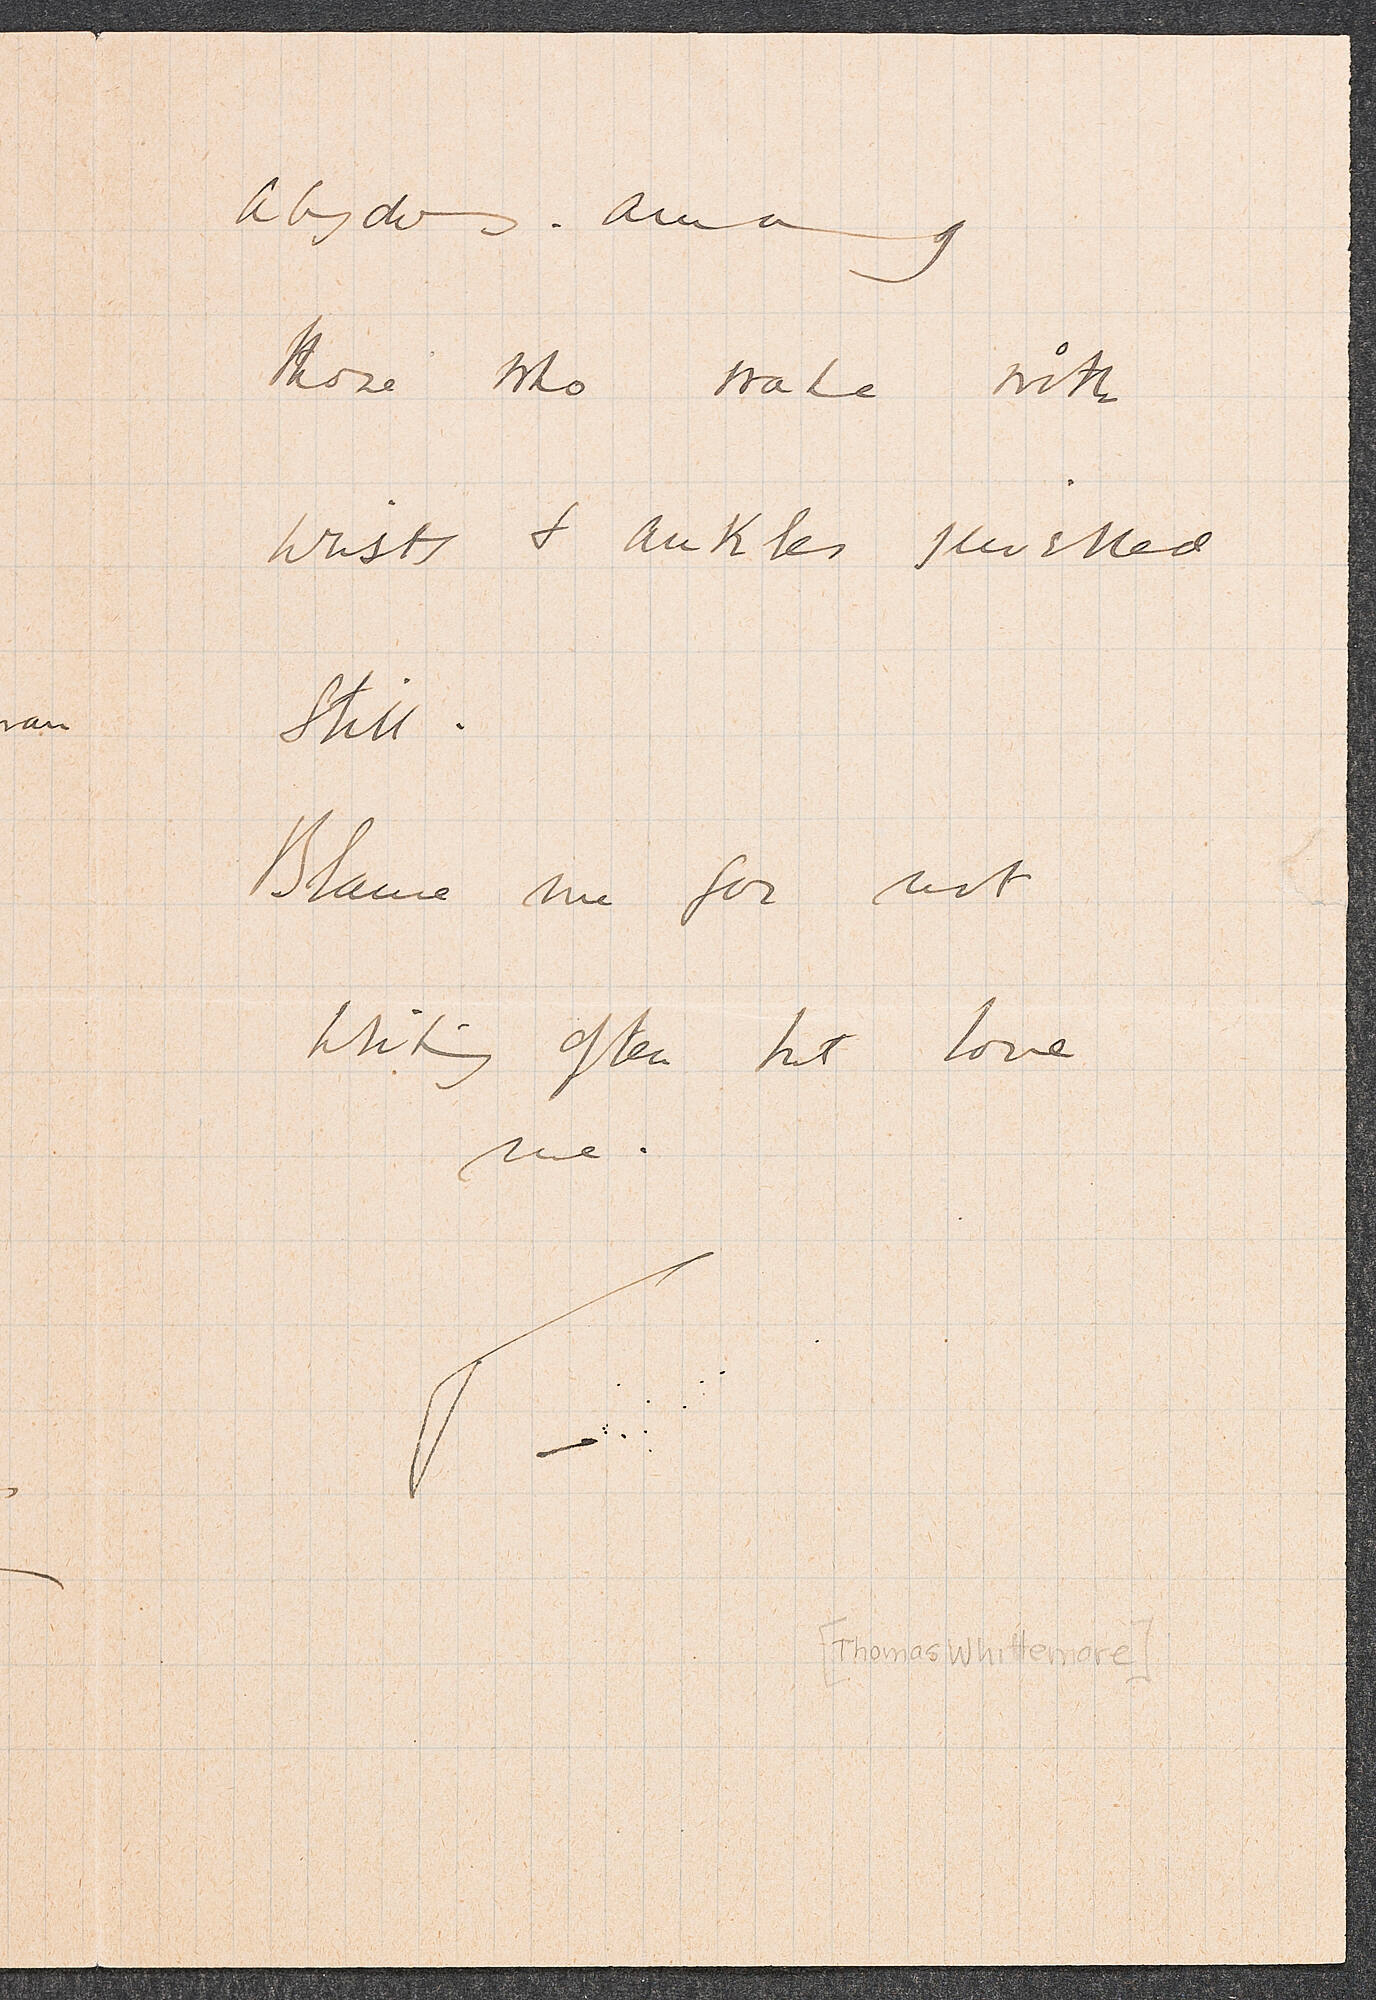 Abydos. among
those who wake with
wrists & ankles
still.
Blame me for not
writing often but love
me.
T
[Thomas Whittemore]